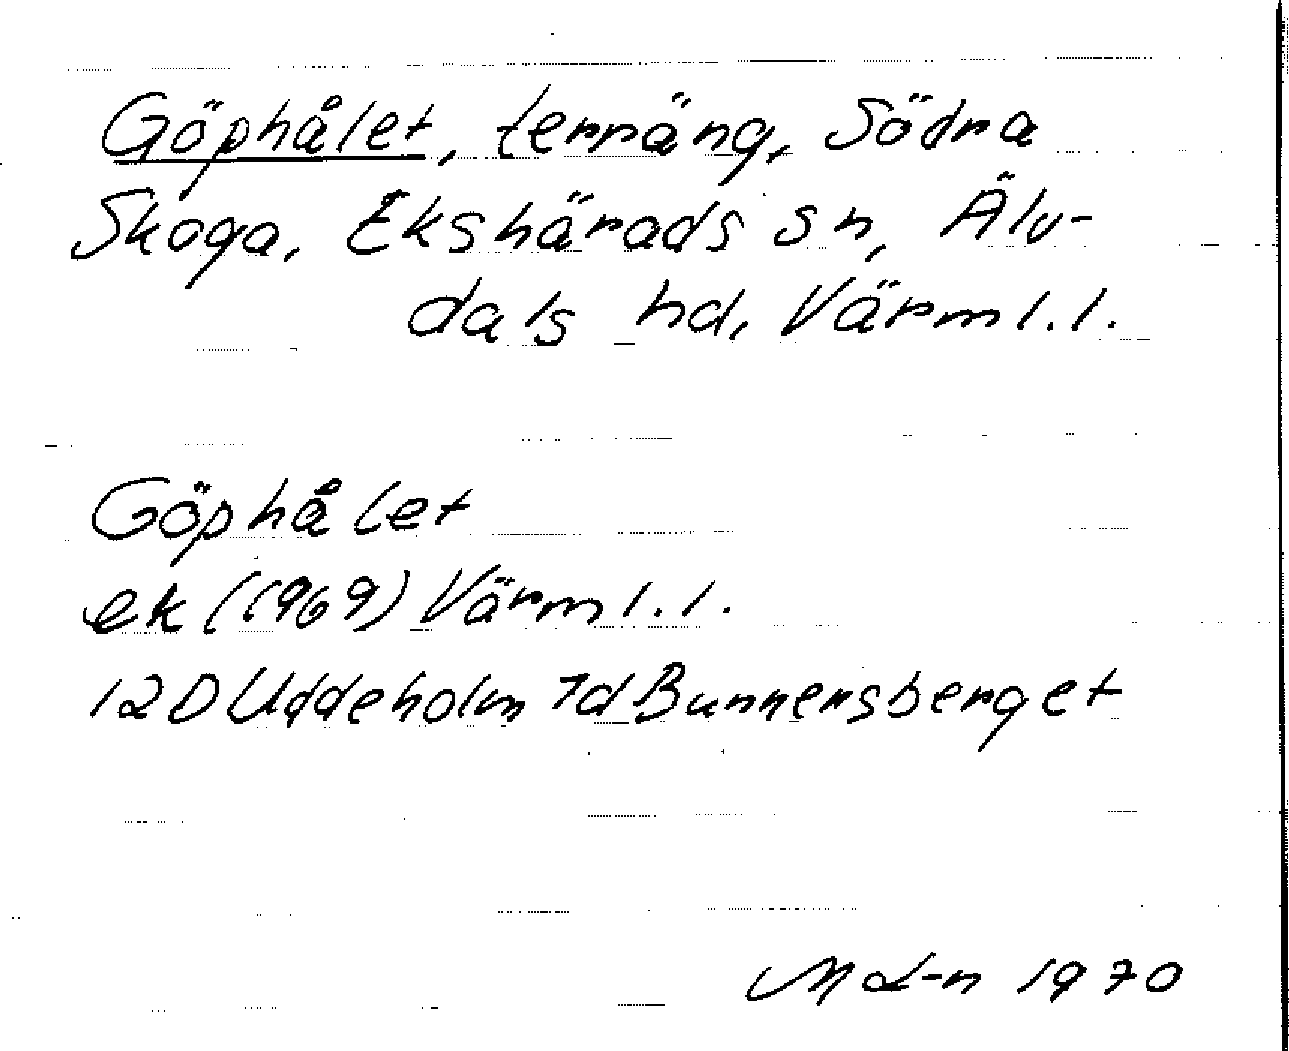 Göphålet, terräng, Södra
Skoga, Ekshärads sn, Älv-
dals hd, Värml. l.
Göphålet
ek (1969) Värml. l.
12D Uddeholm 7d Bunnersberget
M L-n 1970